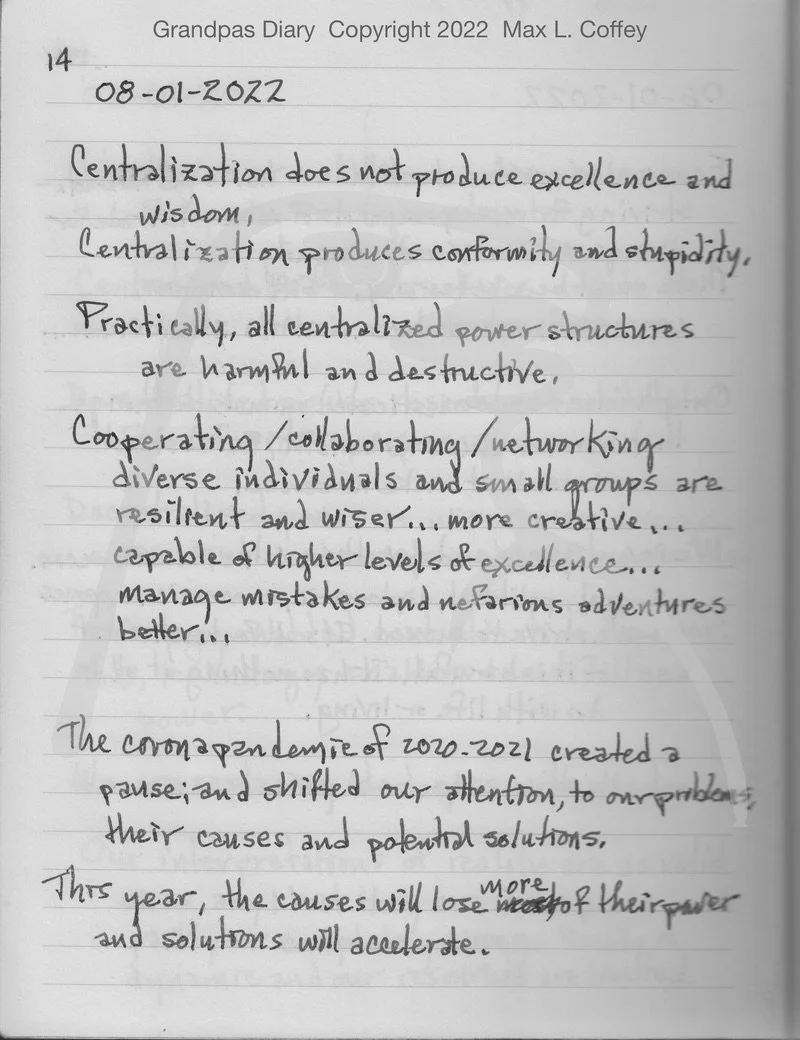 Grandpas Diary Copyright 2022 Max L. Coffey
14
08-01-2022
Centralization does not produce excellence and
wisdom,
Centralization produces conformity and stupidity.
Practically, all centralized power structures
are harmful and destructive.
Cooperating/collaborating/networking
diverse individuals and small groups are
resilient and wiser... more creative...
capable of higher levels of excellence...
manage mistakes and nefarious adventures
better...
The coronapandemic of 2020-2021 created a
pause; and shifted our attention, to our problems,
their causes and potential solutions.
This year, the causes will lose more of their power
and solutions will accelerate.